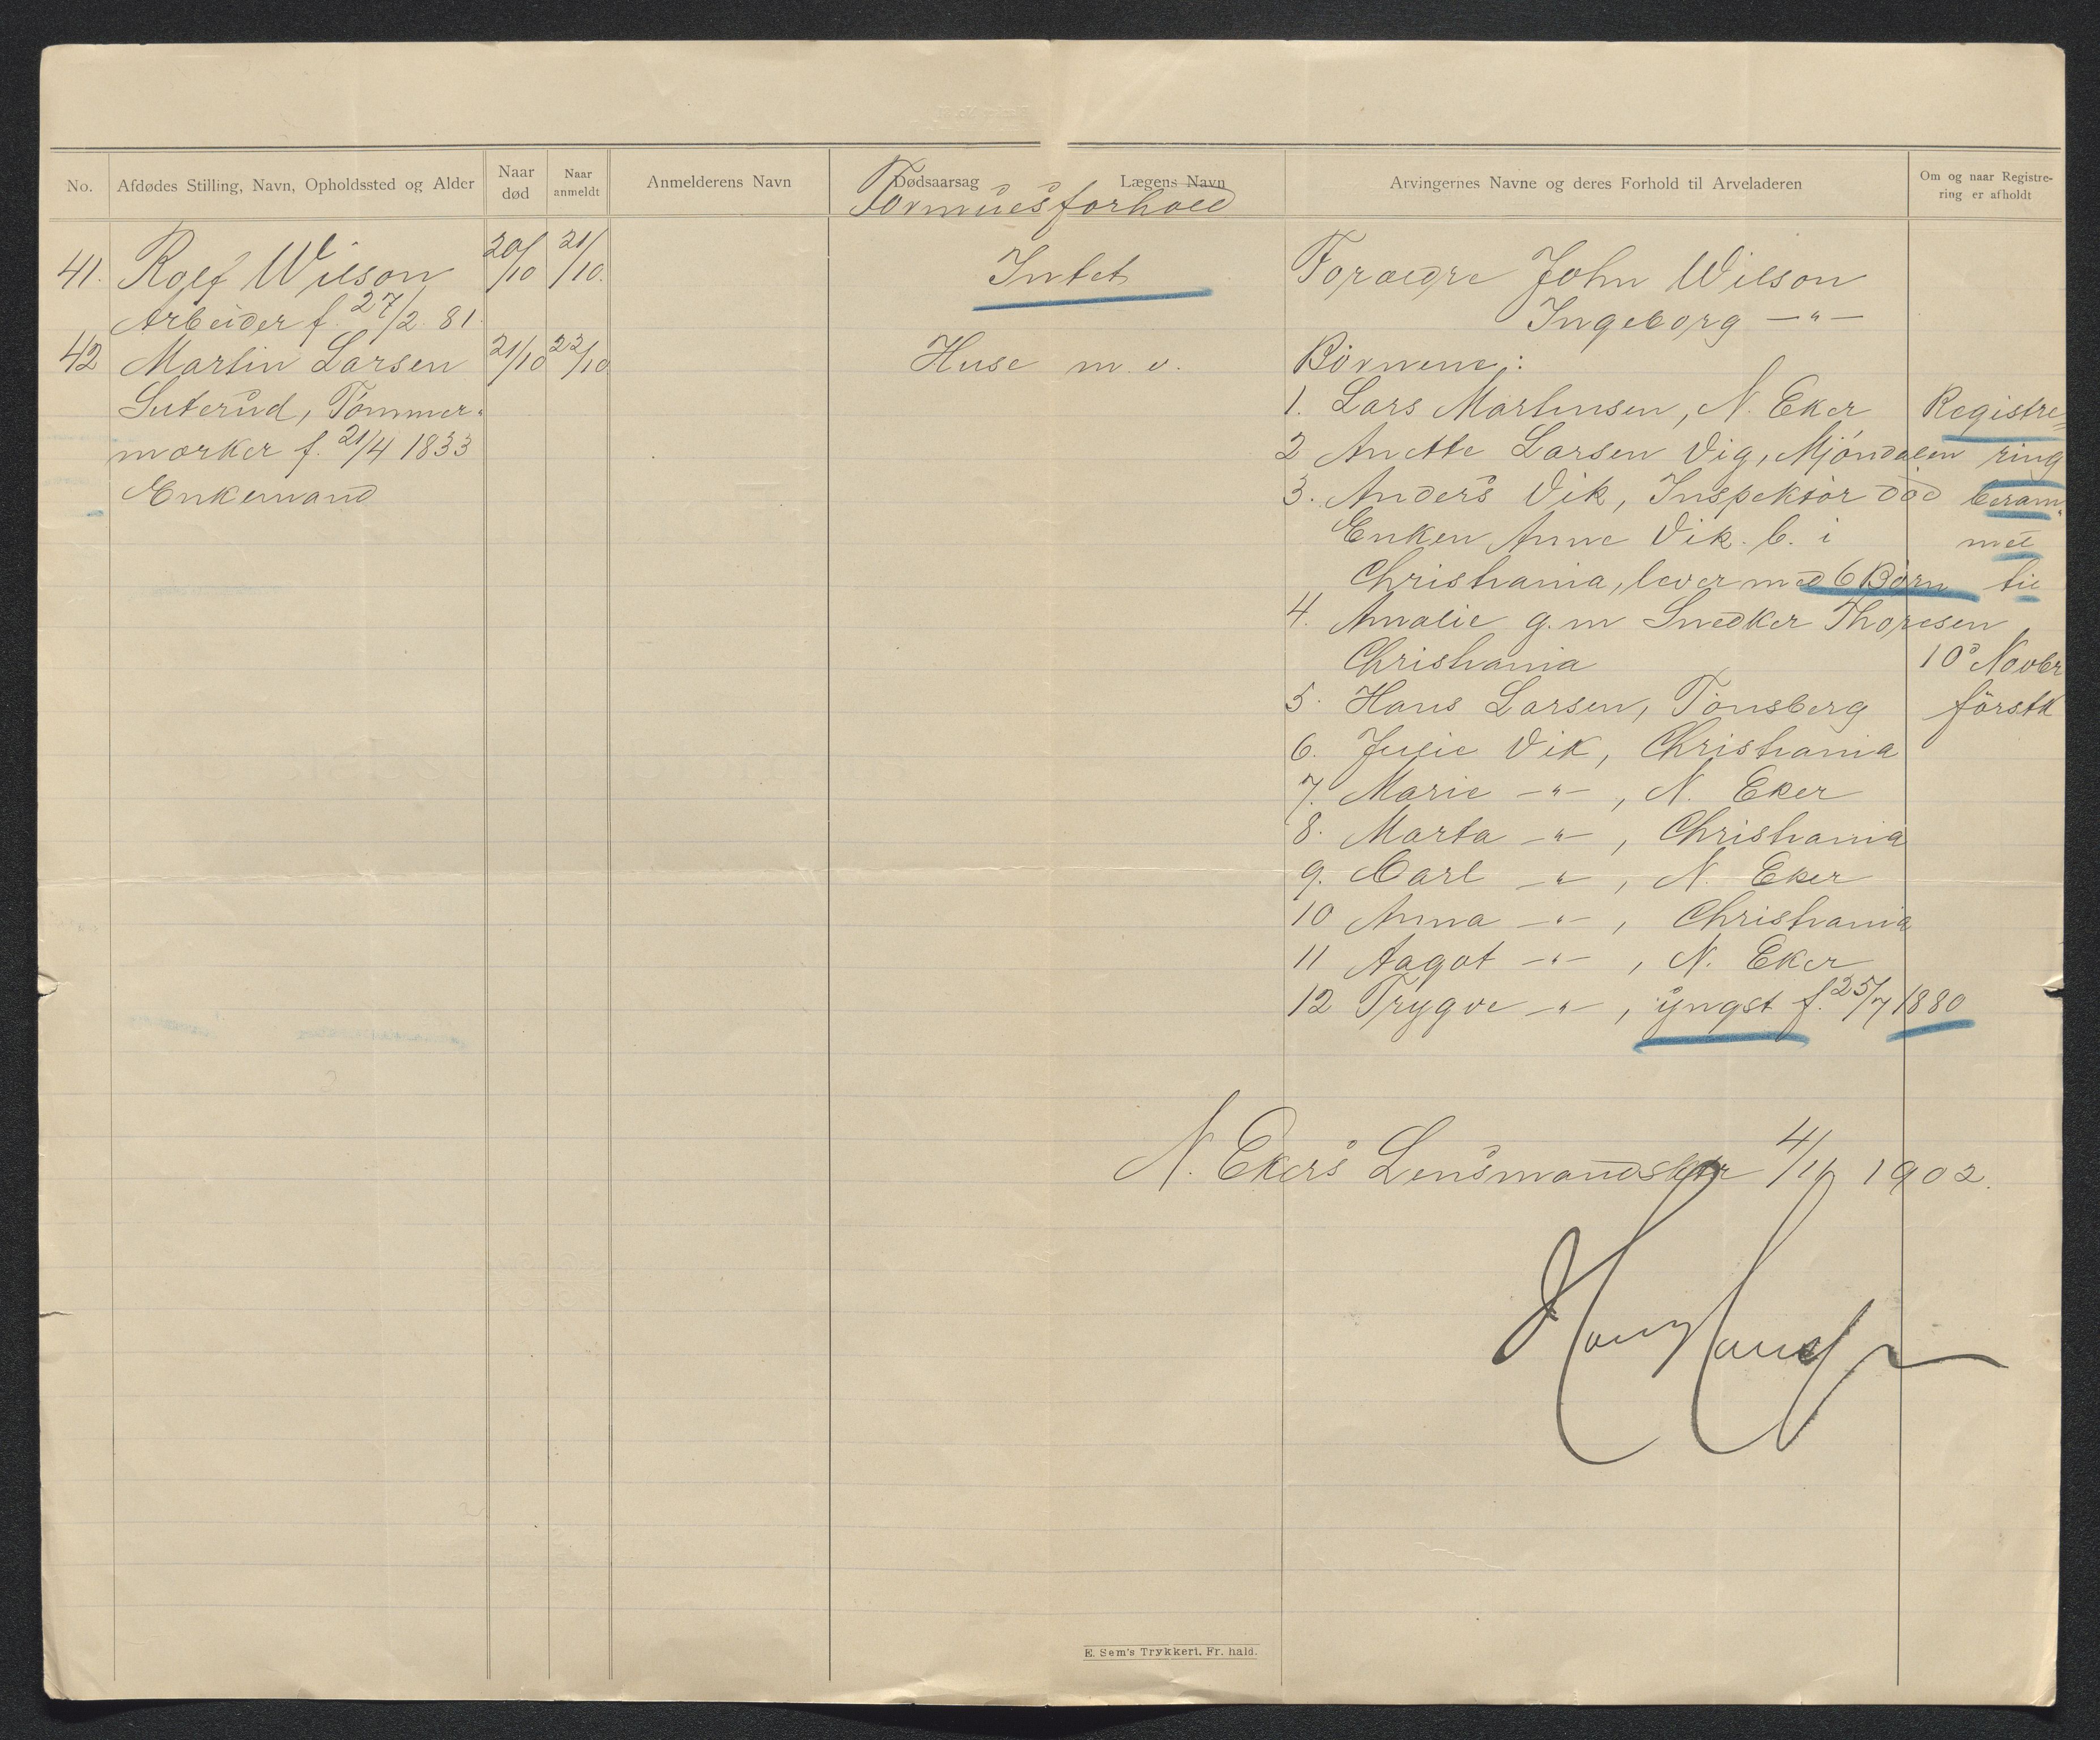 No. Afdødes Stilling, Navn, Opholdssted og Alder Naar død Naar anmeldt Anmelderens Navn Dødsaarsag Lægens Navn Arvingernes Navne og deres Forhold til Arveladeren Om og naar Registrering er afholdt
Formuesforhold
41. Rolf Wilson 20/10 21/10. Intet Forældre John Wilson
Arbeider f. 27/2 81. Ingeborg —"—
42 Martin Larsen 21/10 22/10 Huse m. v. Börnene:
Suterud, Tömmer- 1. Lars Martinsen, N. Eker Registre=
mærker f. 21/4 1833 2 Anette Larsen Vig, Mjöndalen ring
Enkemand 3. Anders Vik, Inspektör död beram-
Enken Anne Vik. b. i met
Christiania, lever med 6 Börn til
4. Amalie g. m Snedker Thoresen
Christiania 10 Novbr
5. Hans Larsen, Tönsberg förstk
6. Julie Vik, Christiania
7. Marie —"—, N. Eker
8. Marta —"—, Christiania
9. Carl —"—, N. Eker
10 Anna —"—, Christiania
11 Aagot —"—, N. Eker
12 Trygve —"—, yngst f. 25/7 1880
N. Ekers Lensmandsktr 4/11 1902.
E. Sem's Trykkeri, Fr. hald.